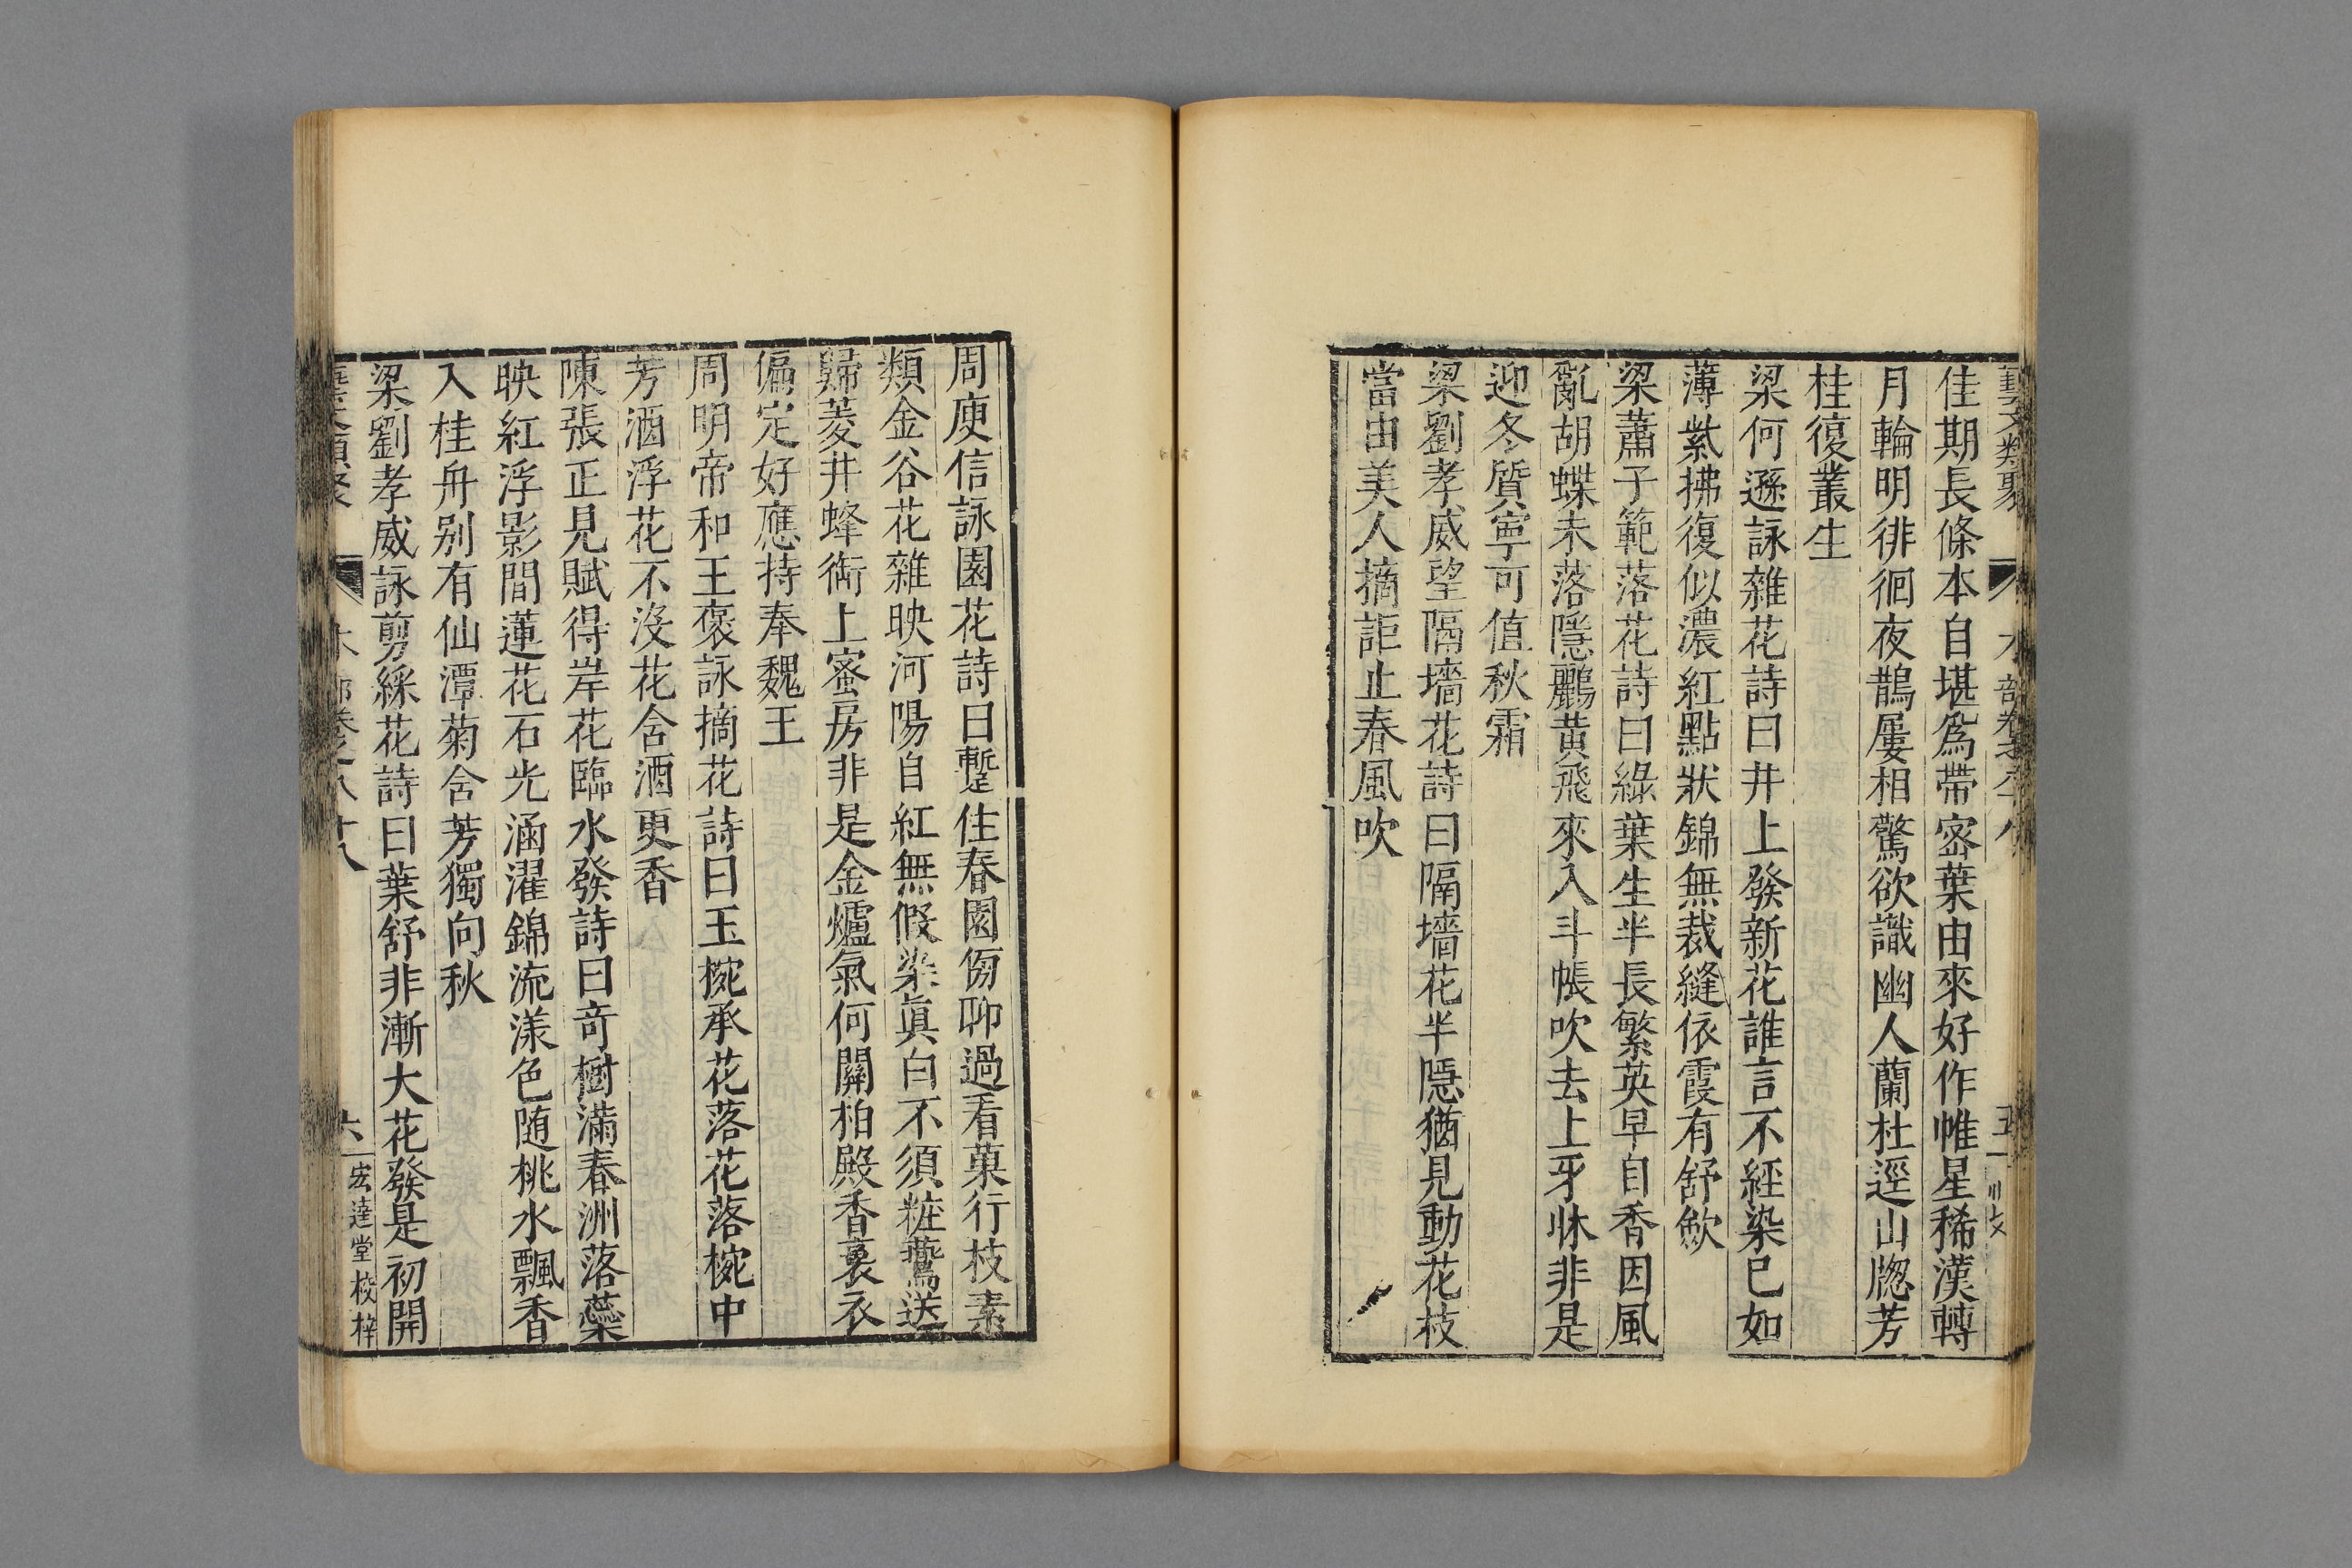 藝文類聚 木部卷之八十八 五
佳期長條本自堪爲帶宻葉由來好作帷星稀漢轉
月輪明徘徊夜鵲屢相驚欲識幽人蘭杜逕山牎芳
桂復叢生
梁何遜詠雜花詩曰井上發新花誰言不經染已如
薄紫拂復似濃紅點狀錦無裁縫依霞有舒歛
梁蕭子範落花詩曰綠葉生半長繁英早自香因風
亂胡蝶未落隱鸝黄飛來入斗帳吹去上牙牀非是
迎冬質寧可值秋霜
梁劉孝威望隔墻花詩曰隔墻花半隱猶見動花枝
當由美人摘詎止春風吹
周庾信詠園花詩曰蹔往春園傍聊過看菓行枝素
類金谷花雜映河陽自紅無假染眞白不須粧鷰送
歸菱井蜂銜上蜜房非是金爐氣何關柏殿香裛衣
偏定好應持奉魏王
周明帝和王褒詠摘花詩曰玉椀承花落花落椀中
芳酒浮花不沒花含酒更香
陳張正見賦得岸花臨水發詩曰奇樹滿春洲落蘂
映紅浮影間蓮花石光涵濯錦流漾色随桃水飄香
入桂舟别有仙潭菊含芳獨向秋
梁劉孝威詠剪綵花詩曰葉舒非漸大花發是初開
藝文類聚 木部卷之八十八 六 宏達堂校梓